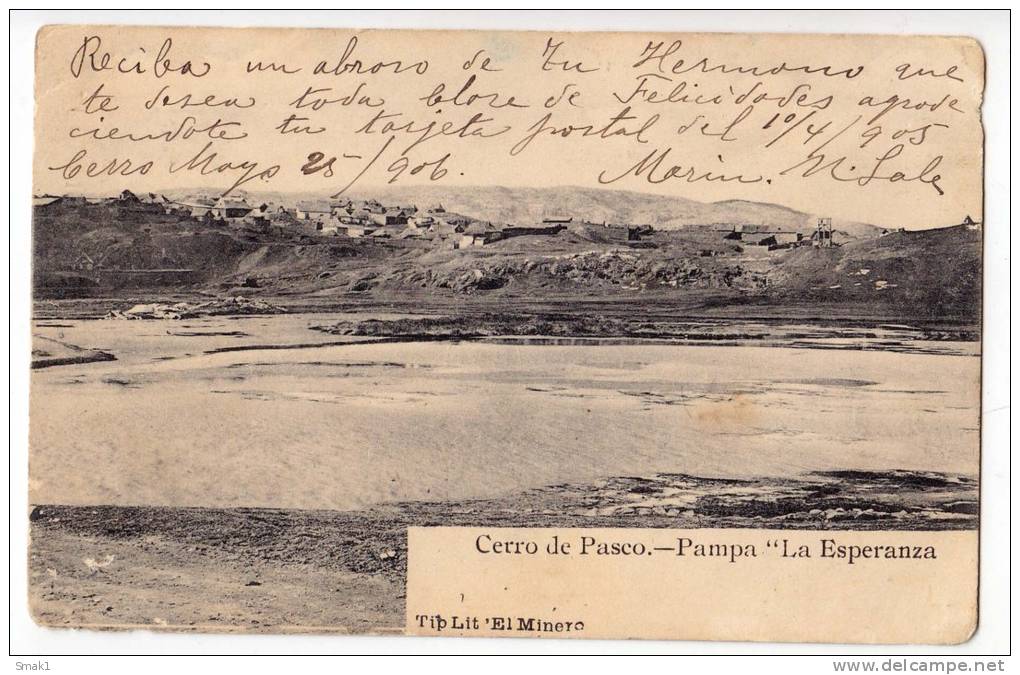 Reciba un abraso de tu Hermano que
te desea toda clase de Felicidades agrade
ciendote tu tarjeta postal del 10/4/905
Cerro Mayo 25/906. Marin. N. Sale
Cerro de Pasco.—Pampa "La Esperanza
Tip Lit 'El Minero
Smak1
www.delcampe.net